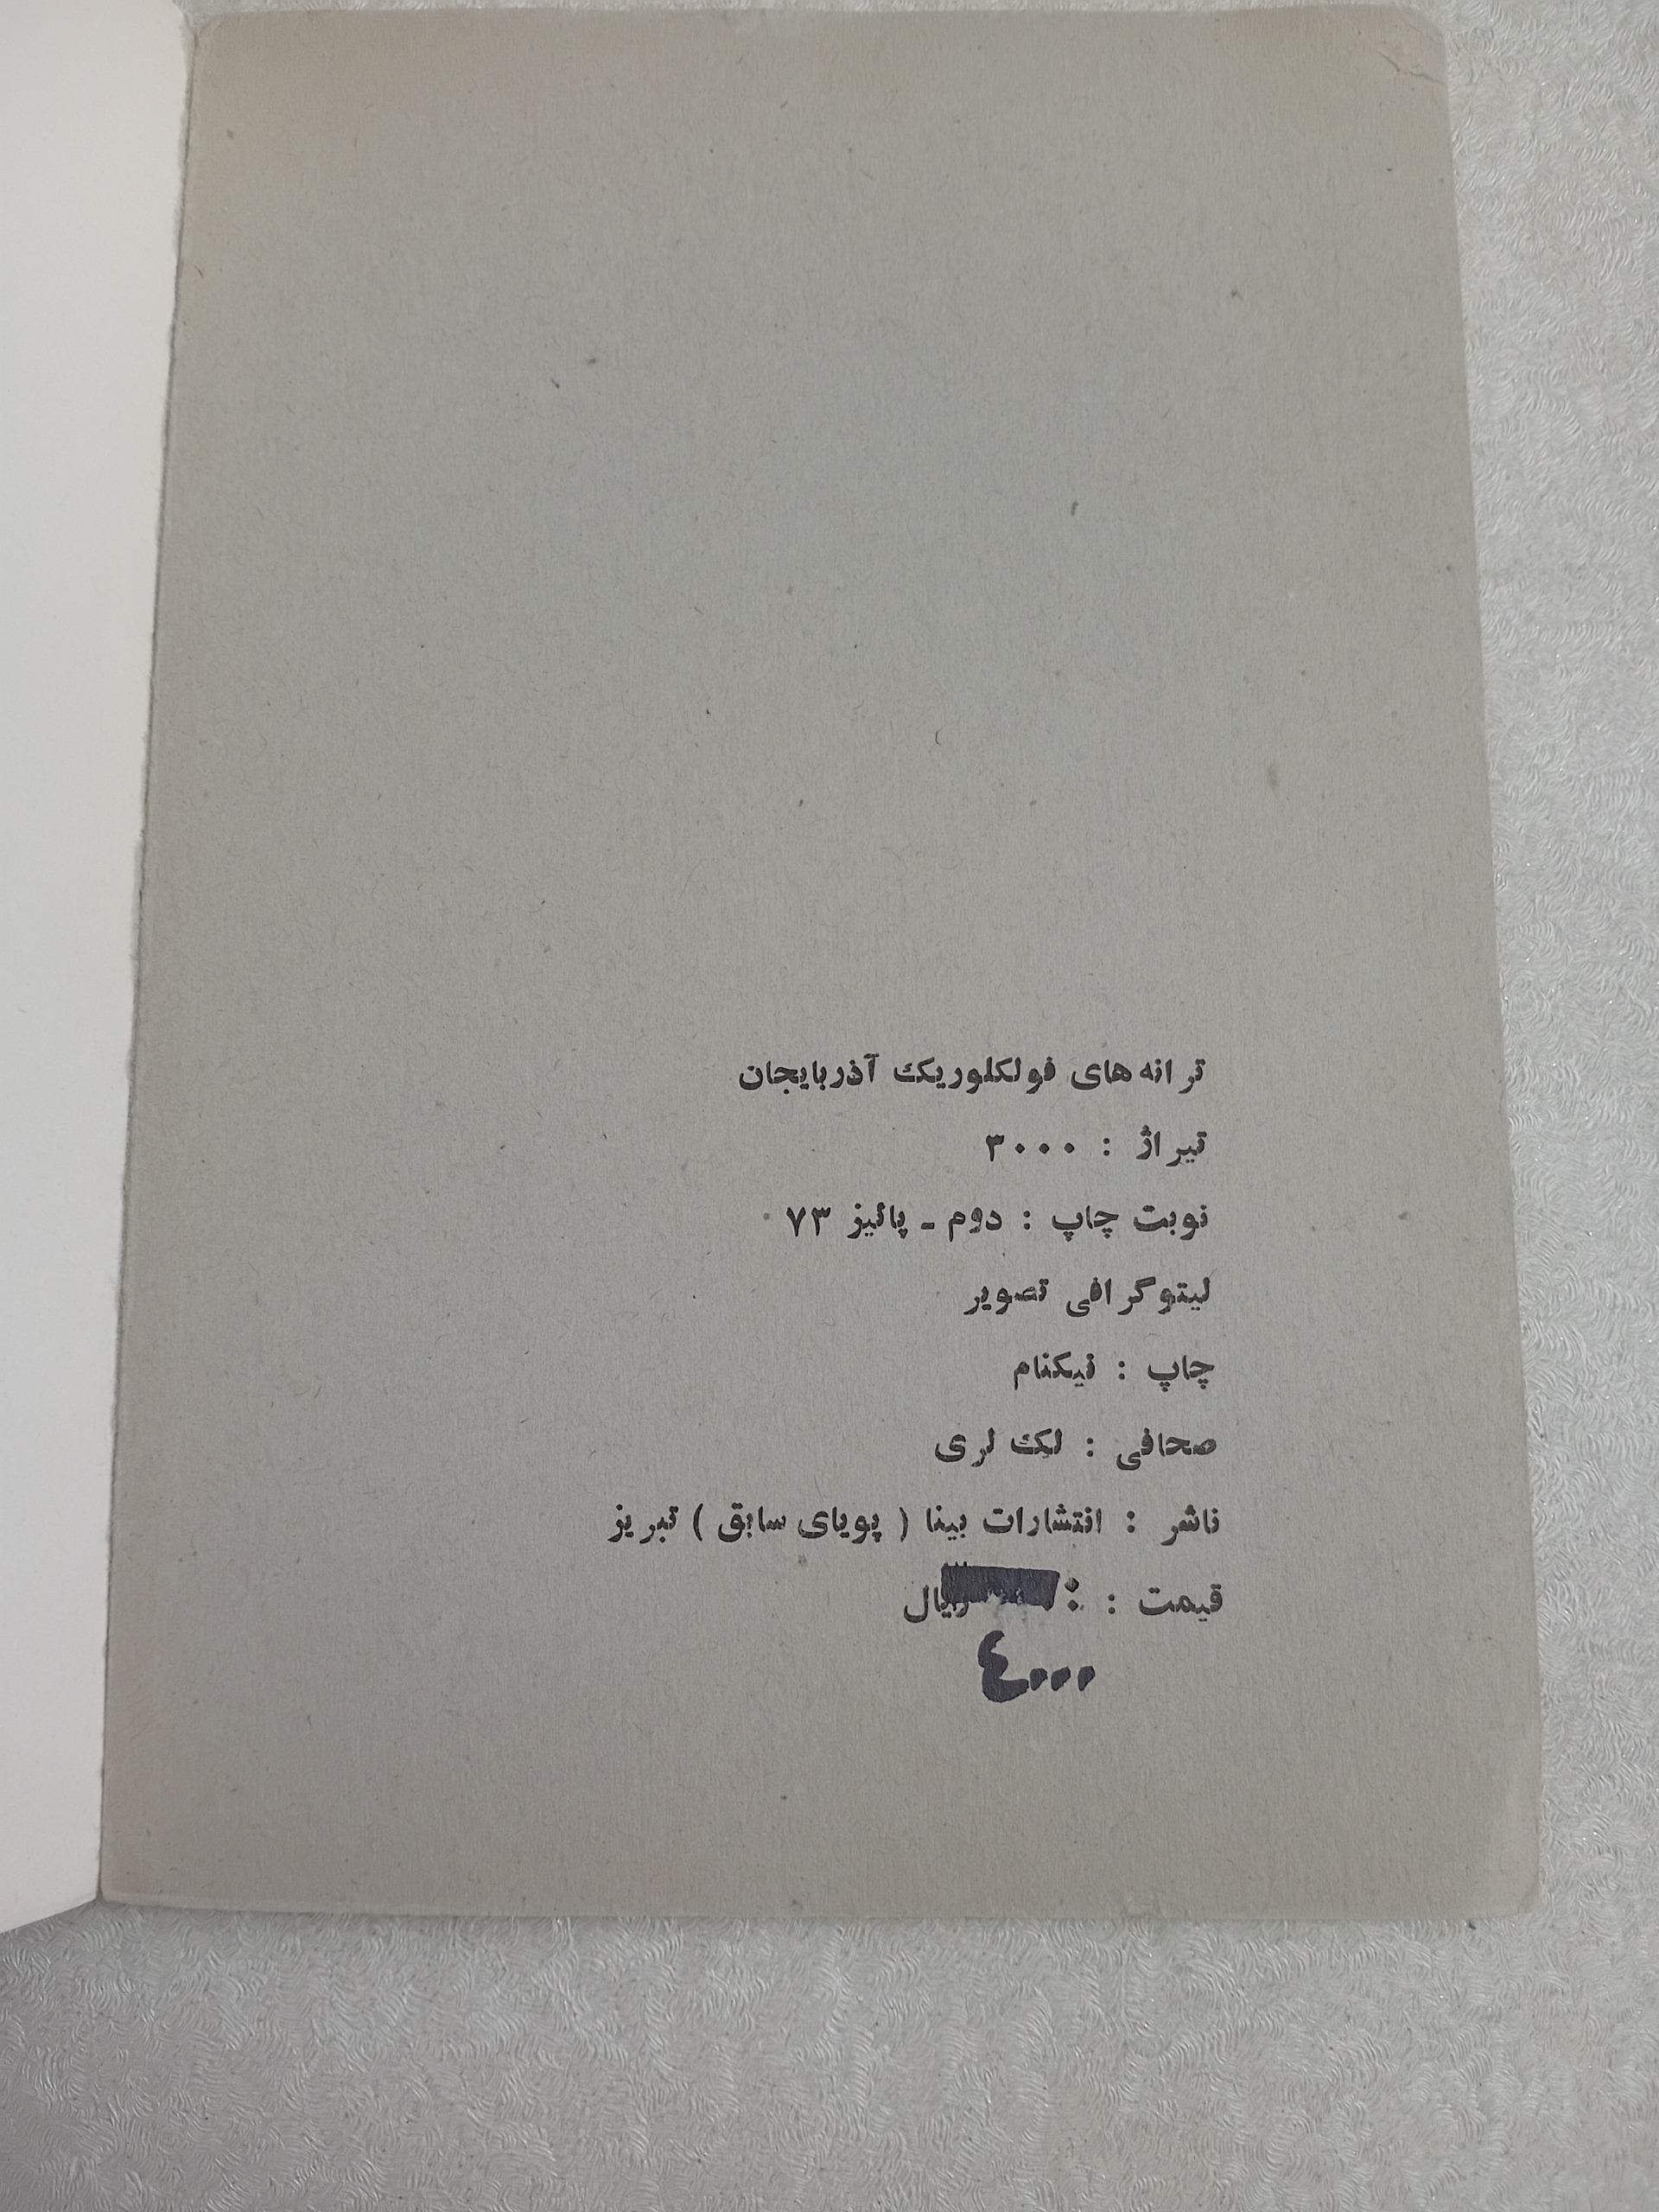 ترانه های فولکلوریک آذربایجان
تیراژ : ۳۰۰۰
نوبت چاپ : دوم ـ پائیز ۷۳
لیتوگرافی تصویر
چاپ : نیکنام
صحافی : لک لری
ناشر : انتشارات بینا ( پویای سابق ) تبریز
قیمت : ریال
٤٠٠٠